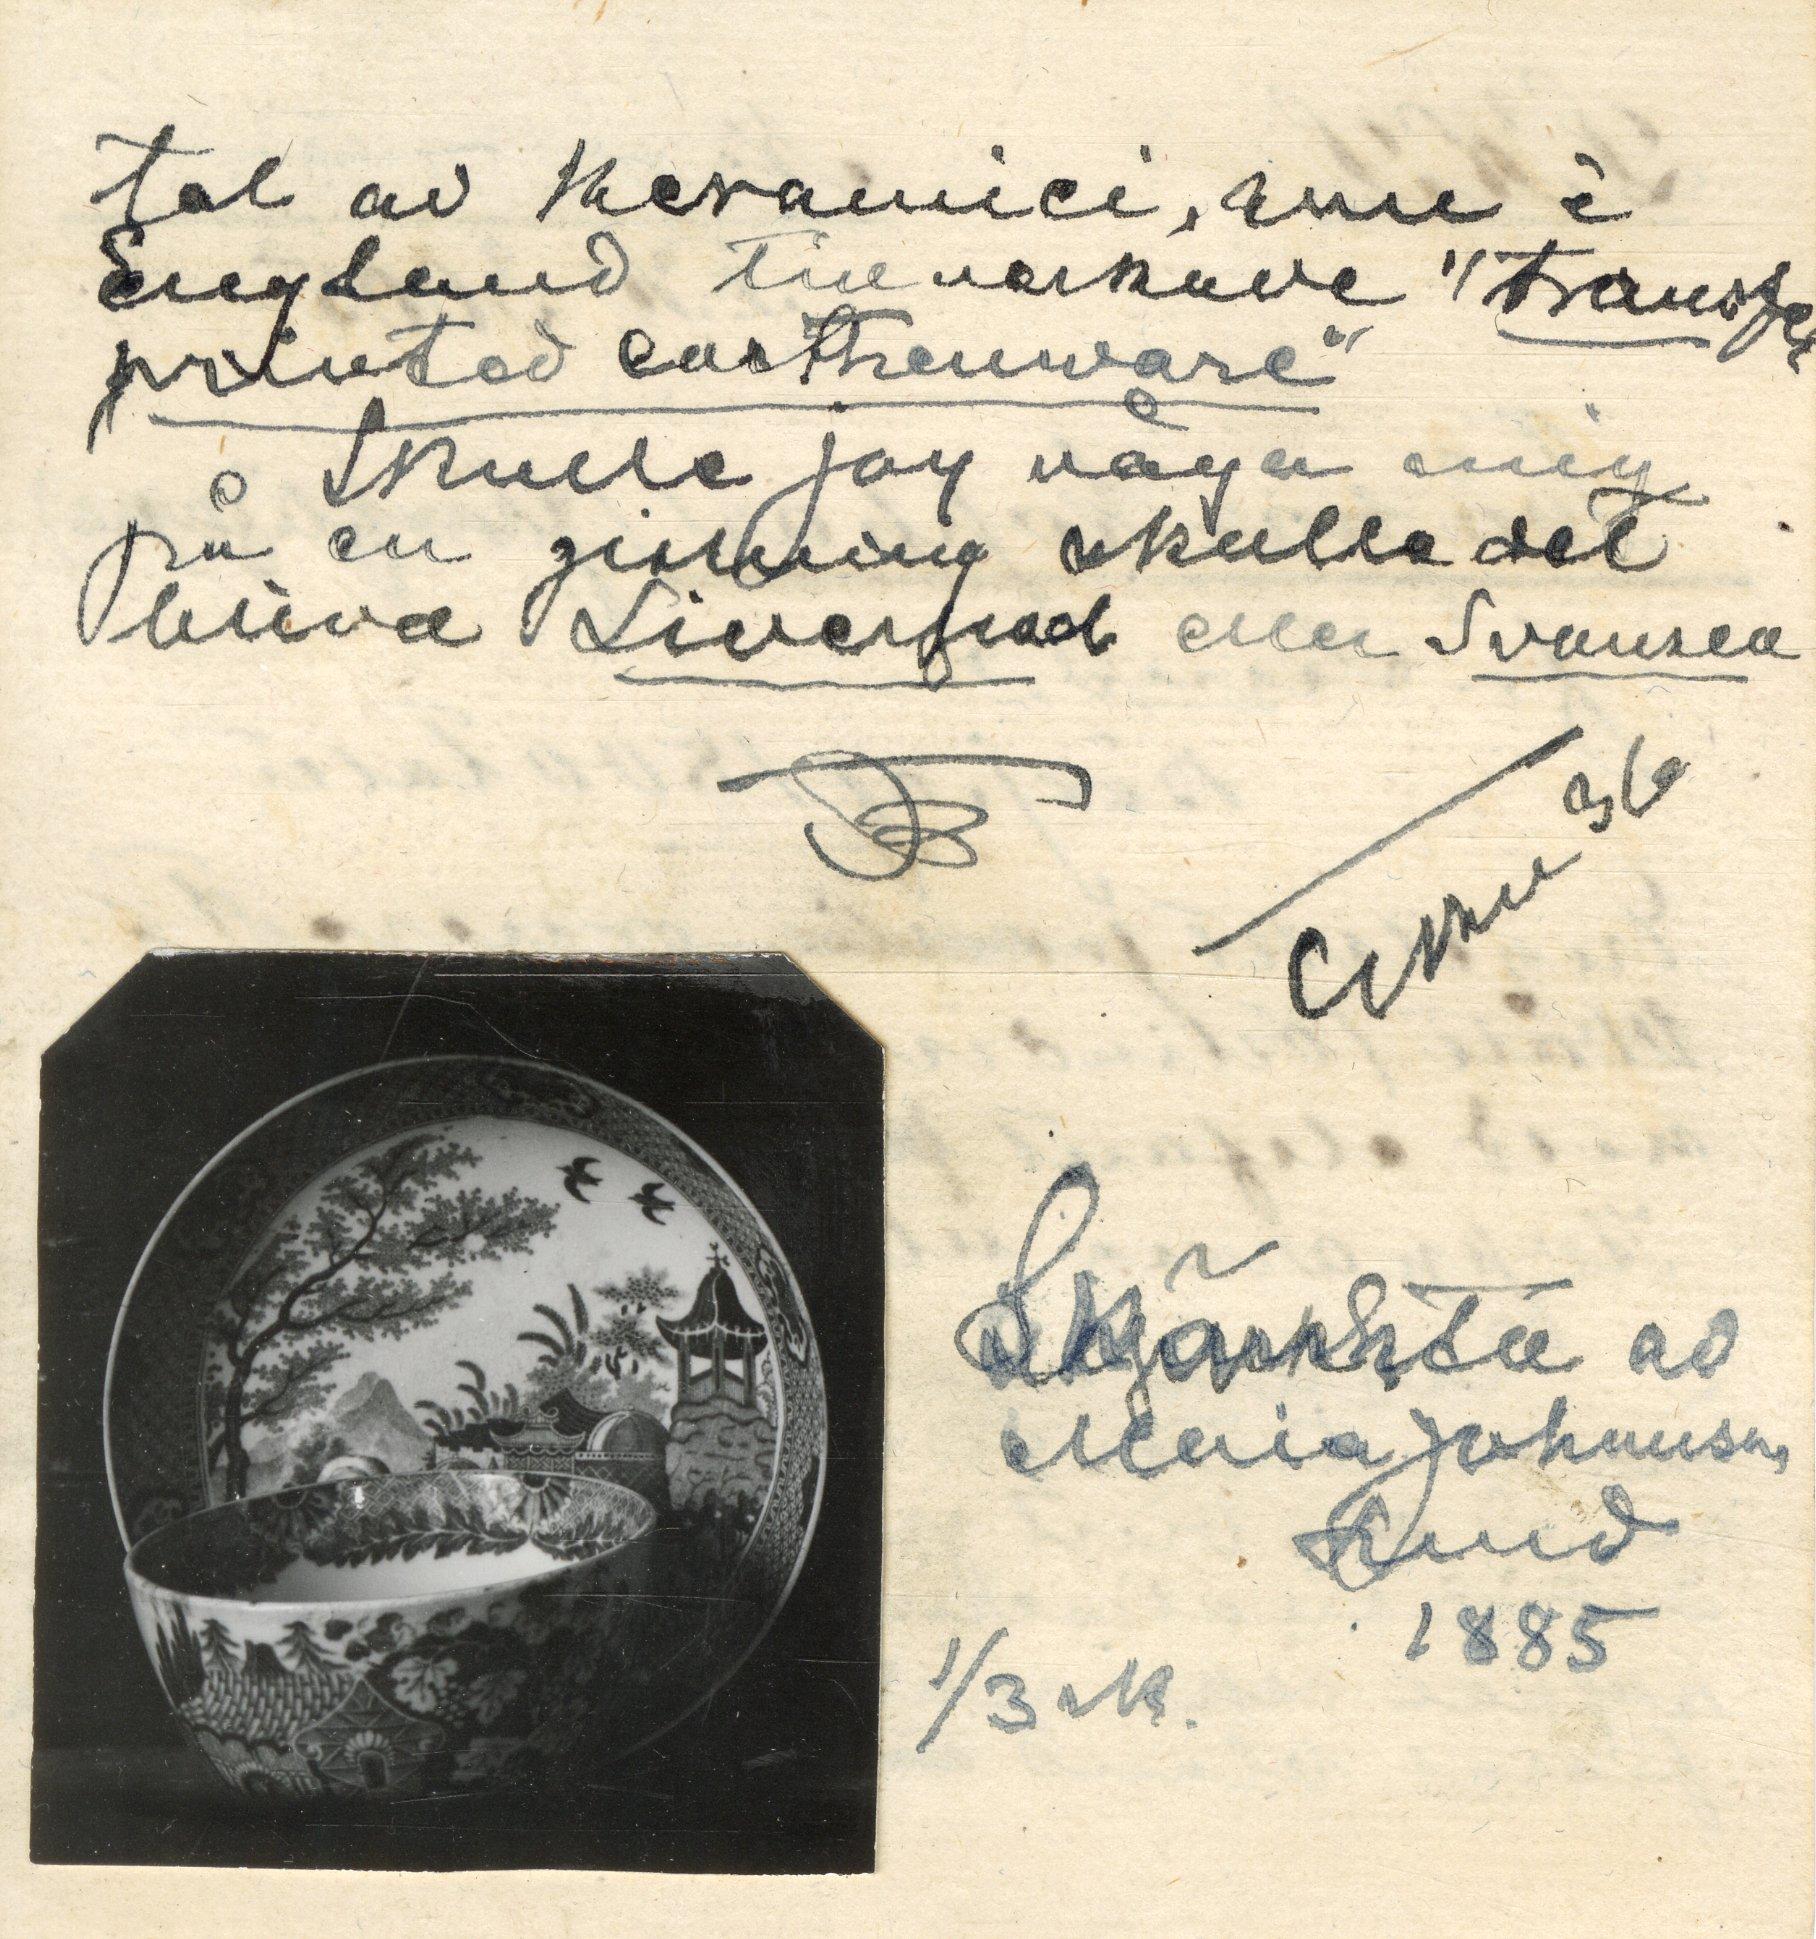 tal av keramici, som i
England tillverkade "transfer
printed earthenware"
Skulle jag våga mig
på en gissning skulle det
bliva Liverpool eller Svansea
36
Skjänkta av
Maria Johansson,
Lund
1885
1/3